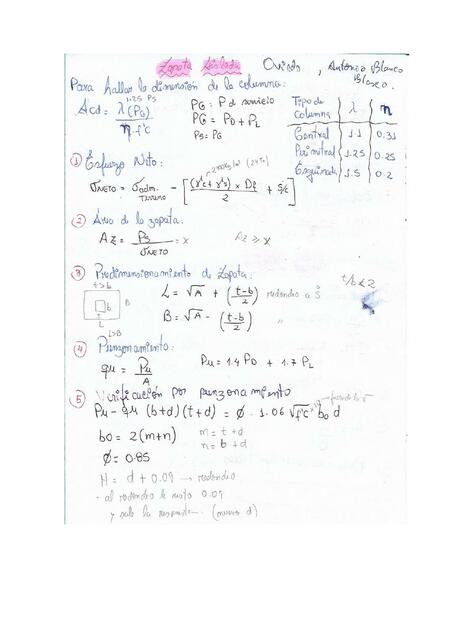 Zapata Aislada Oviedo, Antonio Blanco Blasco.
Para hallar la dimensión de la columna:
1.25 Ps
Acd = λ(PG) / η·f'c
PG = P de servicio
PG = PD + PL
Ps = PG
Tipo de columna λ η
Central 1.1 0.31
Perimetral 1.25 0.25
Esquinada 1.5 0.2
① Esfuerzo Neto:
σNETO = σadm. terreno - [(γc + γs) × Df / 2 + s/c]
② Área de la zapata:
AZ = Ps / σNETO = x AZ ≥ x
③ Predimensionamiento de Zapata:
t/b < 2
t > b
b
B
t
L
L>B
L = √A + (t-b / 2) redondeo a 5
B = √A - (t-b / 2) "
④ Punzonamiento:
qu = Pu / A Pu = 1.4 PD + 1.7 PL
⑤ Verificación por punzonamiento
Pu - qu (b+d)(t+d) = Ø · 1.06 √f'c bo d
bo = 2(m+n) m = t+d
n = b+d
Ø = 0.85
H = d + 0.09 → redondeo
- al redondeo le resto 0.09
y sale la respuesta. (nuevo d)